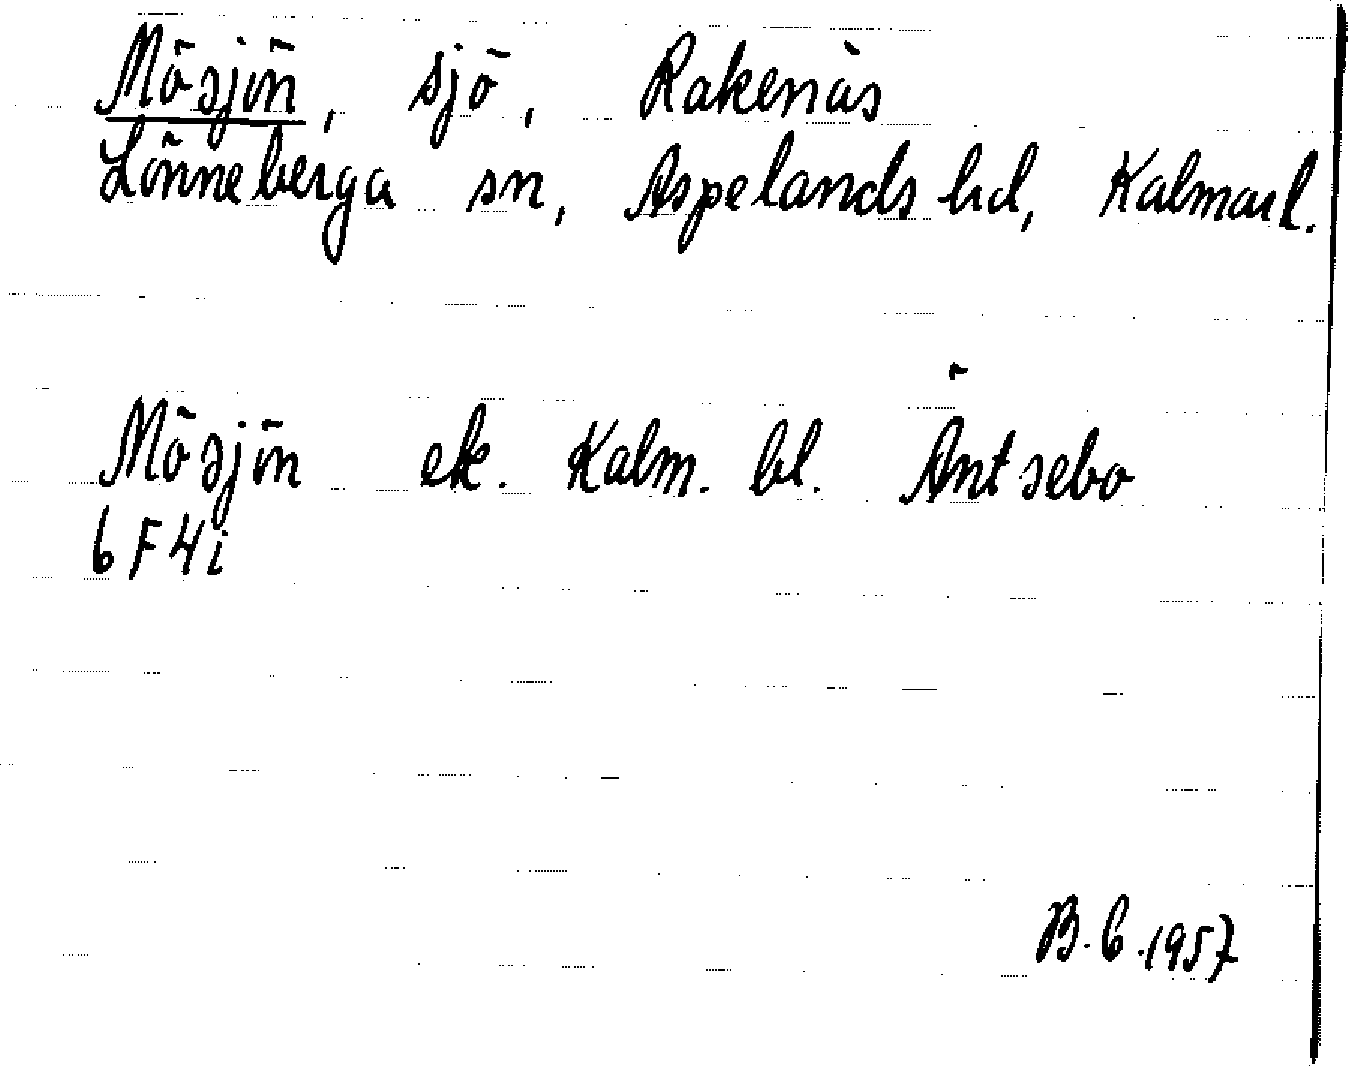 Mösjön, sjö, Rakenäs
Lönneberga sn, Aspelands hd, Kalmarl.
Mösjön ek. Kalm. bl. Äntsebo
6 F 4 i
B. 6. 1957